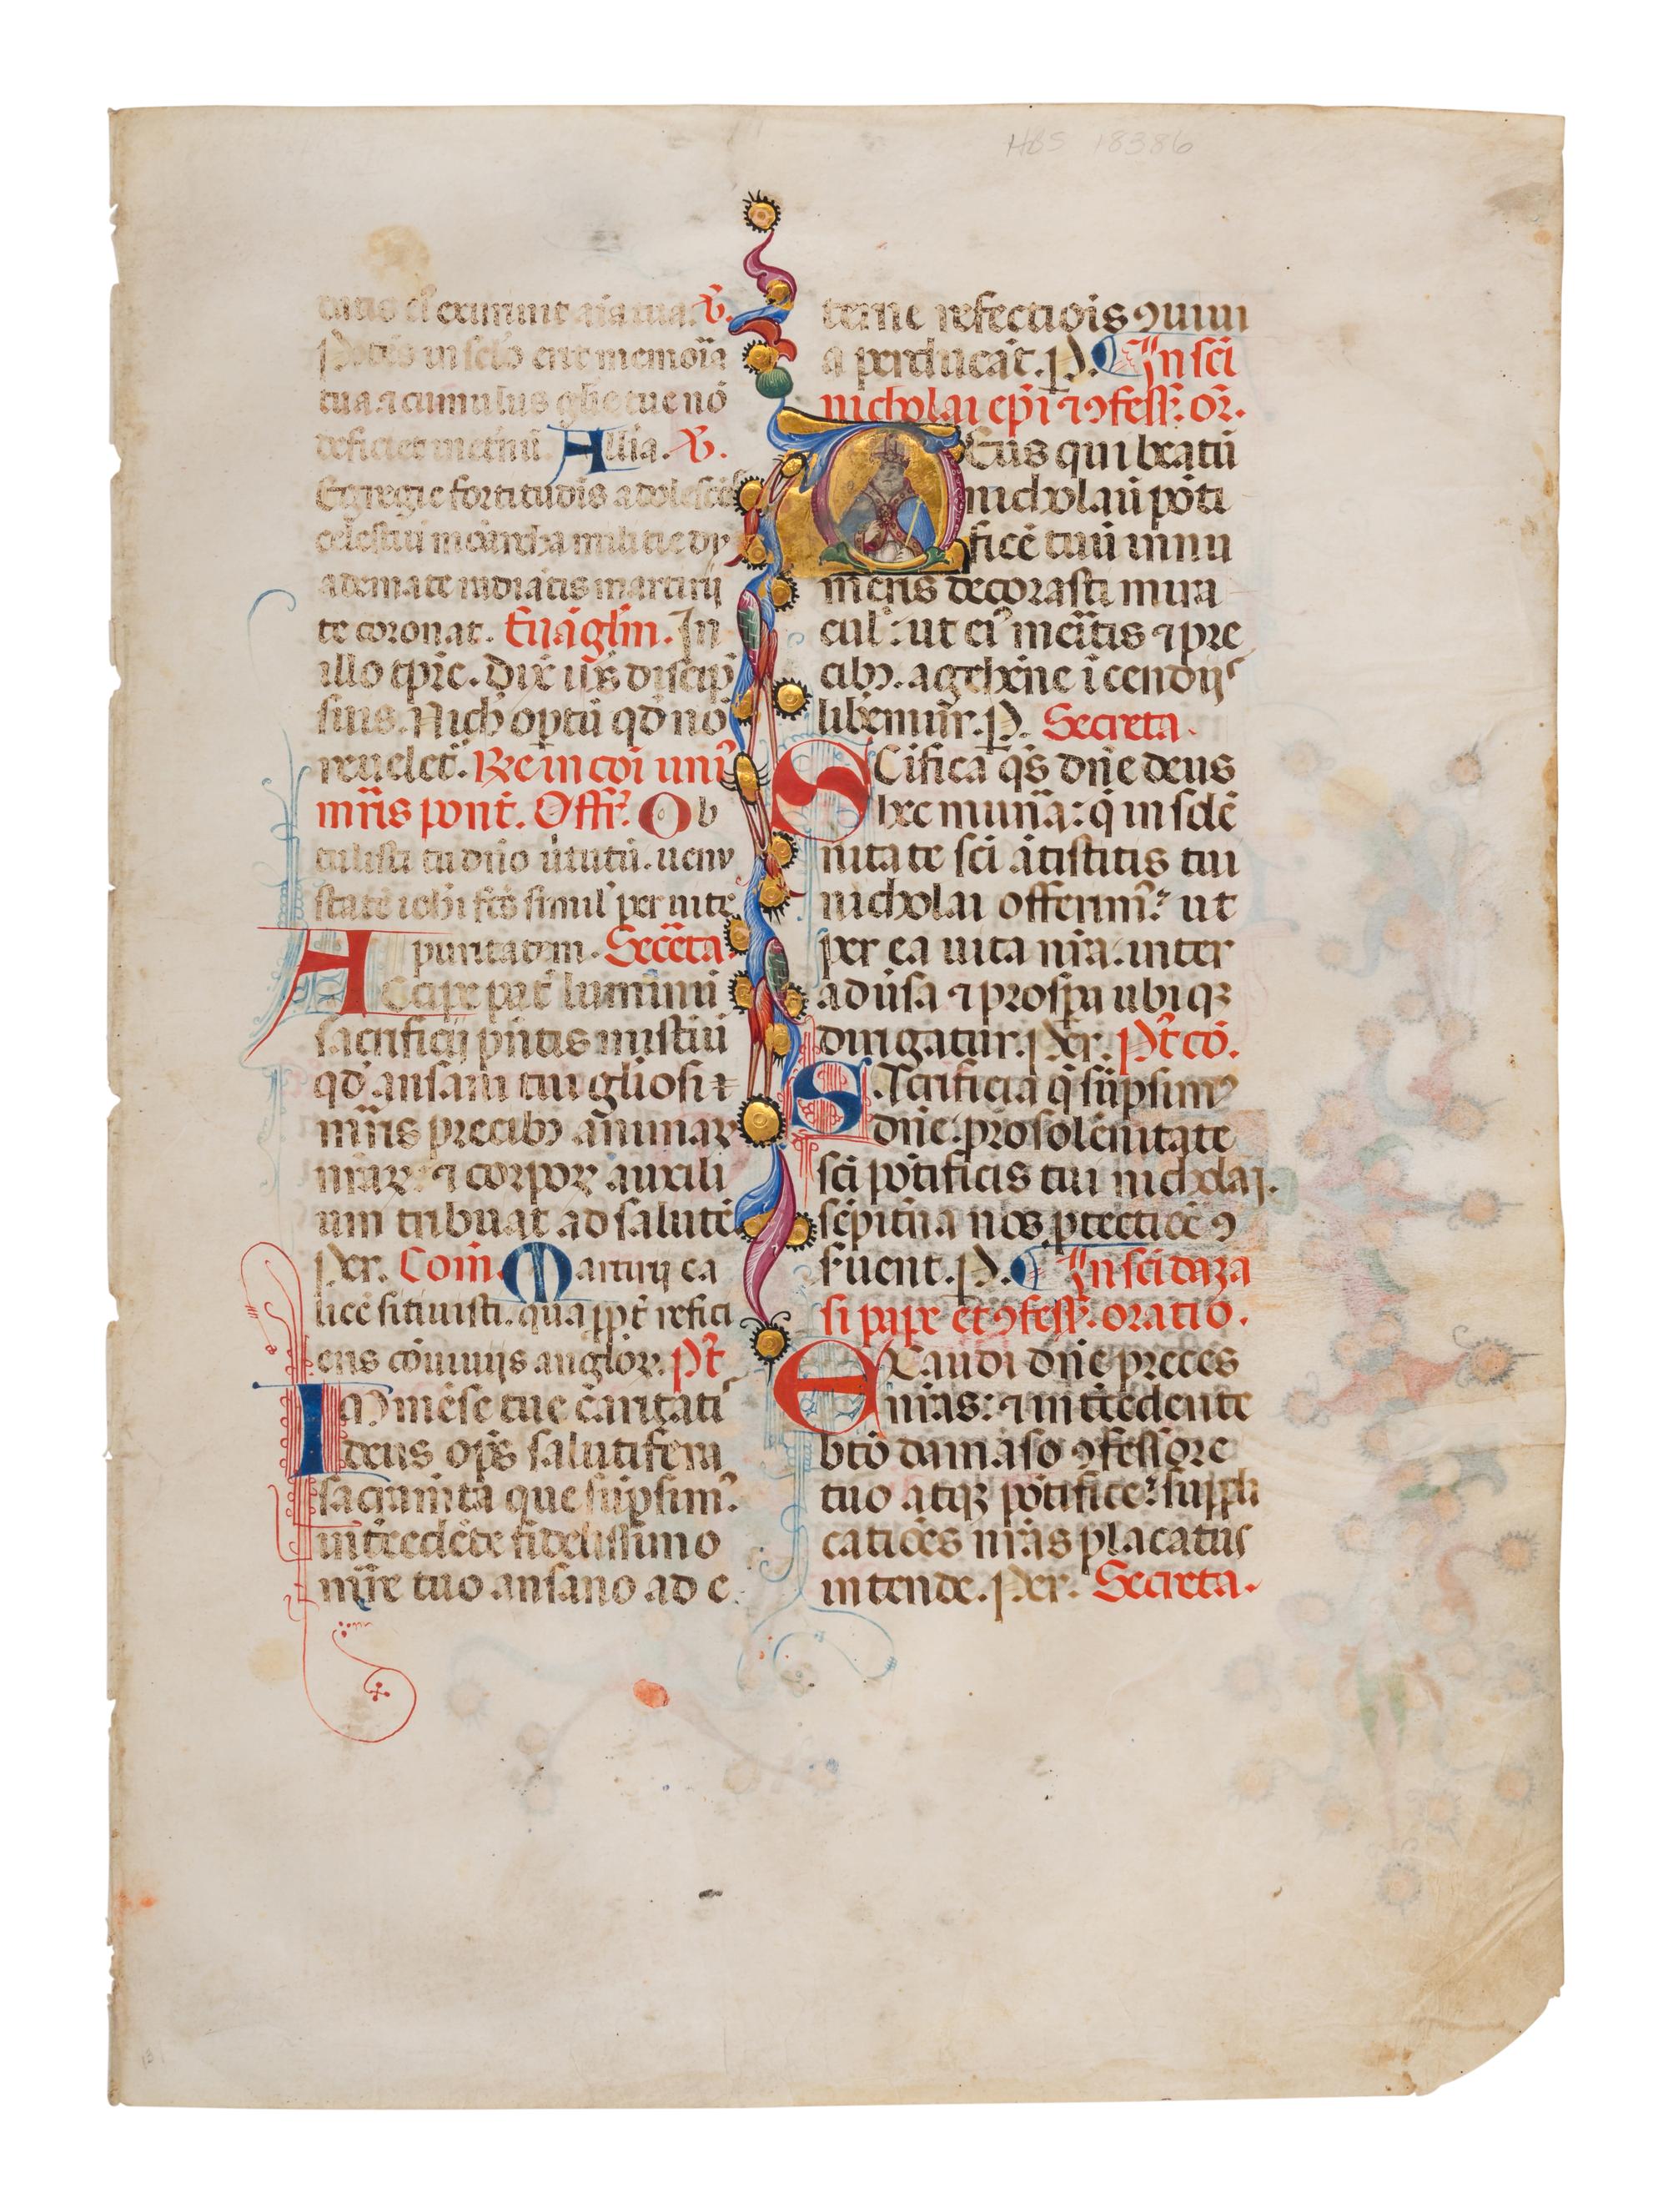 HBS 18386
aia tua. V.
in sclo erit memoia
tua. a cumulus glie tue nō
deficiet inetnū. Allia. V.
Egregie fortitudis adolescēs
celestiu militie dy
ademate martirij
te coronat. Euāglm. In
illo tpre. Dix iħs discip
suis. Nich optū qd nō
reuelet. Re in coi uni
mris pont. Offr. Ob
tulisti tu dño uenu
state simul per uite
puritatem. Secreta.
Accipe pat luminū
sacrificij pntis misteriū
qd ansani tui gliosi
mris precibȝ animaꝝ
nraꝝ ⁊ corpoꝝ auxili
um tribuat ad salutē
Per. Com. Martirij ca
licē sitiuisti. qua ppt refici
eris cōuiuijs angloꝝ. Pt
Inmēse tue caritati
deus ops salutifera
sacramta que sūpsim⁹
intrecedēte fidelissimo
mre tuo ansano ad e
terne refectiōis ꝯuiui
a perducat. P. In sci
nicholai epi ⁊ ꝯfess. or.
Deus qui beatū
nicholaū pōti
ficē tuū innu
meris decorasti mira
cul: ut ei⁹ meritis ⁊ pre
cibȝ. a gehēne icendijs
liberemur. P. Secreta.
Scifica qs dñe deus
hec munera: q in solē
nitate sci atistitis tui
nicholai offerim⁹: ut
per ea uita nra. inter
aduersa ⁊ prospera ubiqȝ
dirigatur. Per. Pt cō.
Sacrificia q sūpsim⁹
dñe. pro solēnitate
sci pōtificis tui nicholaj.
sēpitna nos ptectiōe ꝯ
seruent. P. In sci dama
si pape et ꝯfess. oratio.
Exaudi dñe preces
nras: ⁊ intcedente
btō damaso ꝯfessore
tuo atqȝ pōtifice: suppli
catiōes nras placatus
intende. Per. Secreta.